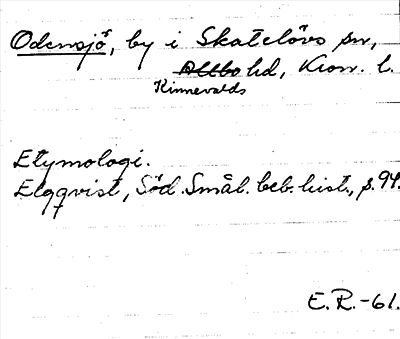 Odensjö, by i Skatelövs sn,
Allbo hd, Kron. l.
Kinnevalds
Etymologi.
Elgqvist, Söd. Smål. beb. hist., s. 94.
E.R.-61.